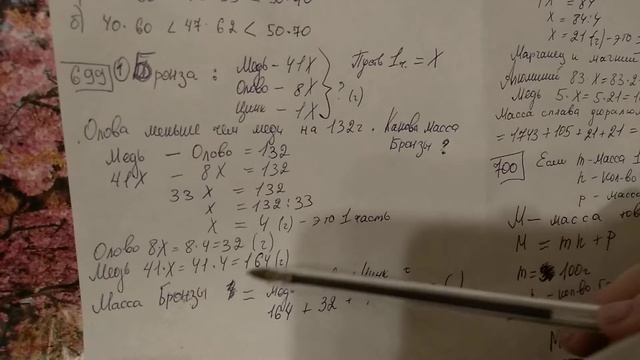 б) 40·60 < 47·62 < 50·70
699 1 Бронза: Медь - 41X
Олово - 8X
Цинк - 1X
? (г)
Пусть 1ч. = X
Олова меньше чем меди на 132г. Какова масса
Бронзы?
Медь - Олово = 132
41X - 8X = 132
33X = 132
X = 132:33
X = 4 (г) - это 1 часть
Олово 8X = 8·4 = 32 (г)
Медь 41·X = 41·4 = 164 (г)
Масса Бронзы =
164 + 32 +
X = 84:4
X = 21 (г) - это
Марганец и магний
Алюминий 83X = 83·2
Медь 5·X = 5·21 = 1
Масса сплава
= 1743 + 105 + 21 + 21 =
700 Если m - масса 1
n - кол-во
p - масса
M - масса
M = mn + p
m = 100г